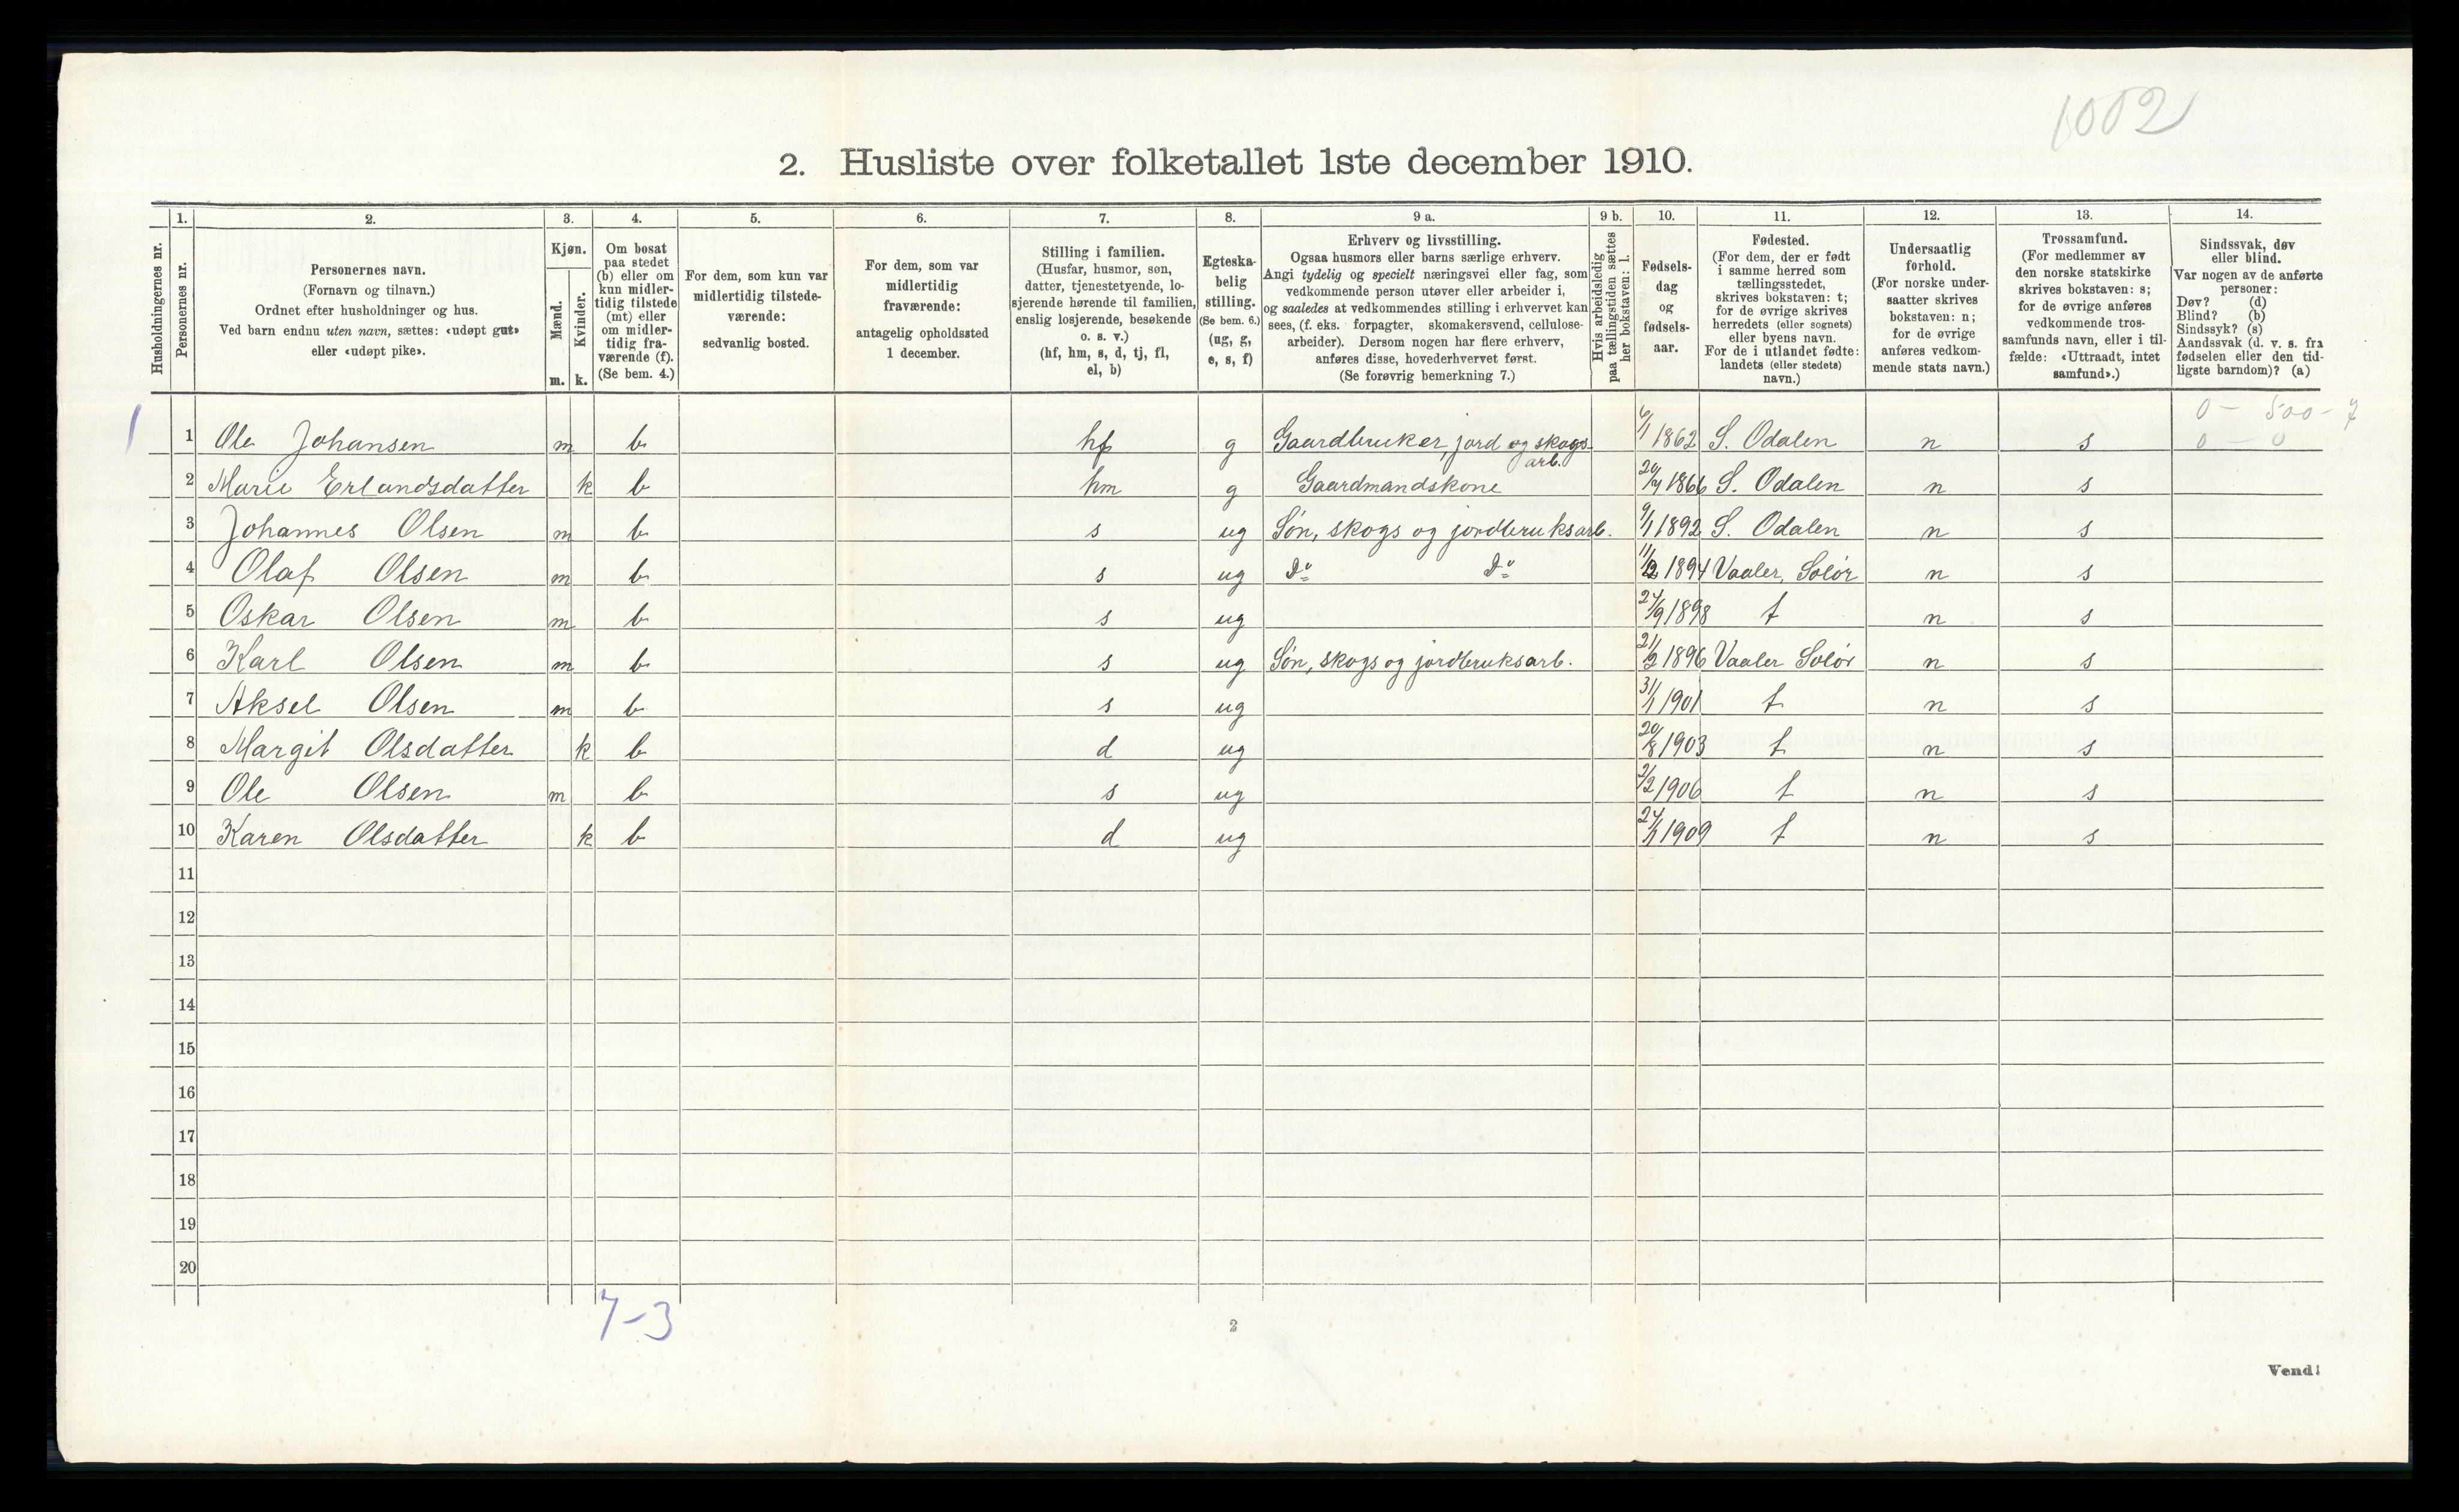 1002
2. Husliste over folketallet 1ste december 1910.
Husholdningernes nr.
1.
Personernes nr.
2.
Personernes navn.
(Fornavn og tilnavn.)
Ordnet efter husholdninger og hus.
Ved barn endnu uten navn, sættes: «udøpt gut»
eller «udøpt pike».
3.
Kjøn.
Mænd.
Kvinder.
m. k.
4.
Om bosat
paa stedet
(b) eller om
kun midler-
tidig tilstede
(mt) eller
om midler-
tidig fra-
værende (f).
(Se bem. 4.)
5.
For dem, som kun var
midlertidig tilstede-
værende:
sedvanlig bosted.
6.
For dem, som var
midlertidig
fraværende:
antagelig opholdssted
1 december.
7.
Stilling i familien.
(Husfar, husmor, søn,
datter, tjenestetyende, lo-
sjerende hørende til familien,
enslig losjerende, besøkende
o. s. v.)
(hf, hm, s, d, tj, fl,
el, b)
8.
Egteska-
belig
stilling.
(Se bem. 6.)
(ug, g,
e, s, f)
9 a.
Erhverv og livsstilling.
Ogsaa husmors eller barns særlige erhverv.
Angi tydelig og specielt næringsvei eller fag, som
vedkommende person utøver eller arbeider i,
og saaledes at vedkommendes stilling i erhvervet kan
sees, (f. eks. forpagter, skomakersvend, cellulose-
arbeider). Dersom nogen har flere erhverv,
anføres disse, hovederhvervet først.
(Se forøvrig bemerkning 7.)
9 b.
Hvis arbeidsledig
paa tællingstiden sættes
her bokstaven: l.
10.
Fødsels-
dag
og
fødsels-
aar.
11.
Fødested.
(For dem, der er født
i samme herred som
tællingsstedet,
skrives bokstaven: t;
for de øvrige skrives
herredets (eller sognets)
eller byens navn.
For de i utlandet fødte:
landets (eller stedets)
navn.)
12.
Undersaatlig
forhold.
(For norske under-
saatter skrives
bokstaven: n;
for de øvrige
anføres vedkom-
mende stats navn.)
13.
Trossamfund.
(For medlemmer av
den norske statskirke
skrives bokstaven: s;
for de øvrige anføres
vedkommende tros-
samfunds navn, eller i til-
fælde: «Uttraadt, intet
samfund».)
14.
Sindssvak, døv
eller blind.
Var nogen av de anførte
personer:
Døv? (d)
Blind? (b)
Sindssyk? (s)
Aandssvak (d. v. s. fra
fødselen eller den tid-
ligste barndom)? (a)
0 - 500 - 7
1 1 Ole Johansen m b hf g Gaardbruker, jord og skogs- 6/1 1862 S. Odalen n s 0 - 0
arb.
2 Marie Erlandsdatter k b hm g Gaardmandskone 1866 S. Odalen n s
3 Johannes Olsen m b s ug Søn, skogs og jordbruksarb. 9/1 1892 S. Odalen n s
4 Olaf Olsen m b s ug Do Do 1894 Vaaler, Solør n s
5 Oskar Olsen m b s ug 27/9 1898 t n s
6 Karl Olsen m b s ug Søn, skogs og jordbruksarb. 21/2 1896 Vaaler Solør n s
7 Aksel Olsen m b s ug 31/1 1901 t n s
8 Margit Olsdatter k b d ug 20/8 1903 t n s
9 Ole Olsen m b s ug 2/2 1906 t n s
10 Karen Olsdatter k b d ug 1909 t n s
11
12
13
14
15
16
17
18
19
20
7-3
2
Vend!